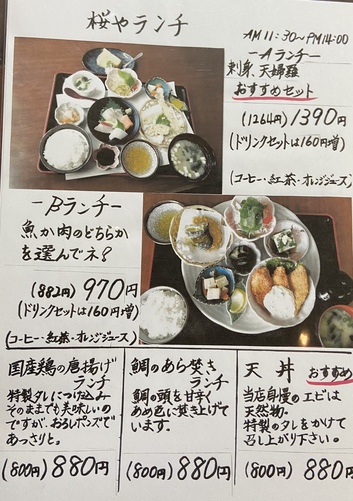 桜やランチ
AM11:30~PM14:00
-Aランチ-
刺身、天婦羅
おすすめセット
(1264円) 1390円
(ドリンクセットは160円増)
(コーヒー・紅茶・オレンジジュース)
-Bランチ-
魚か肉のどちらか
を選んでネ?
(882円) 970円
(ドリンクセットは160円増)
(コーヒー・紅茶・オレンジジュース)
国産鶏の唐揚げ
ランチ
特製タレにつけ込み
そのままでも美味しいの
ですが、おろしポンズで
あっさりと。
(800円) 880円
鯛のあら焚き
ランチ
鯛の頭を甘辛く
あめ色に焚き上げて
います。
(800円) 880円
天丼 おすすめ
当店自慢のエビは
天然物。
特製のタレをかけて
召し上がり下さい。
(800円) 880円